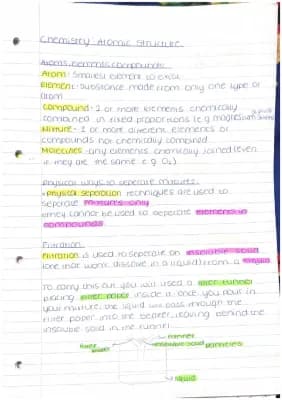 Chemistry Atomic Structure
Atoms, elements, compounds
Atom - Smallest element to exist
Element - substance made from only one type of
atom
Compound - 2 or more elements chemically
combined in fixed proportions (e.g magnesium
Mixture - 2 or more different elements or
compounds not chemically combined
Molecules - any elements chemically joined (even
if they are the same e.g. O₂)
Physical ways to seperate mixtures.
Physical seperation techniques are used to
seperate mixtures only
they cannot be used to seperate elements in
compounds
Filtration
Filtration is used to seperate an insoluble solid
(one that wont dissolve in a liquid) from a liquid
To carry this out you will need a filter funnel
placing filter paper inside it. Once you pour in
your mixture, the liquid will pass through the
filter paper into the beaker, leaving behind the
insoluble solid in the funnel
funnel
filter paper
insoluble solid particles
liquid